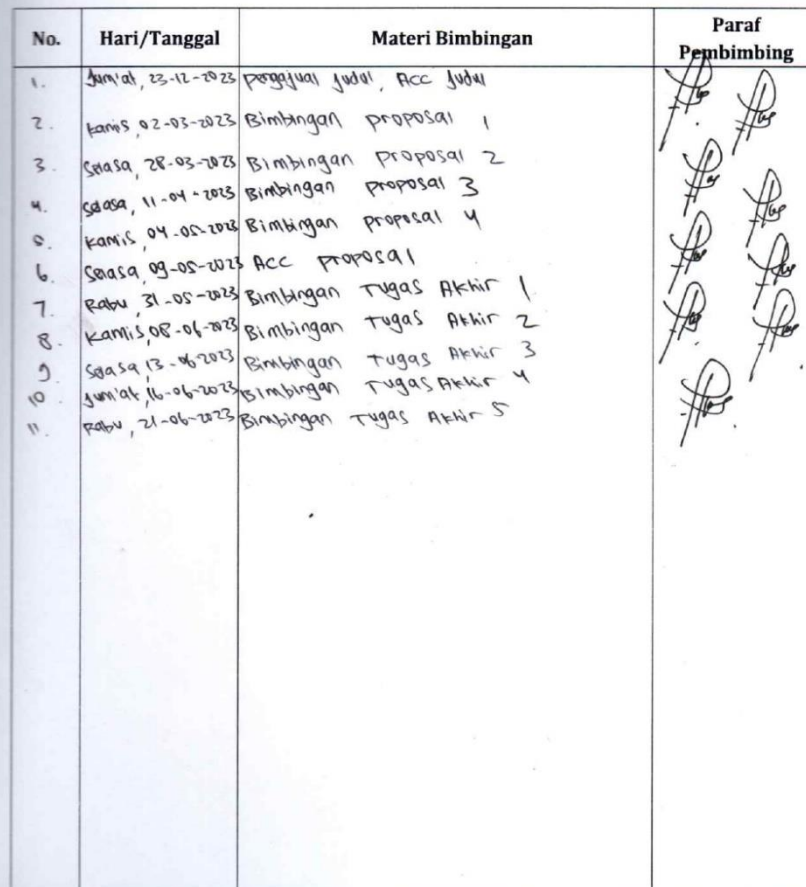 No. Hari/Tanggal Materi Bimbingan Paraf Pembimbing
1. Jum'at, 23-12-2023 pengajuai judul, Acc judul
2. kamis, 02-03-2023 Bimbingan proposal 1
3. Selasa, 28-03-2023 Bimbingan proposal 2
4. Selasa, 11-04-2023 Bimbingan proposal 3
5. kamis, 04-05-2023 Bimbingan proposal 4
6. Selasa, 09-05-2023 ACC proposal
7. Rabu, 31-05-2023 Bimbingan Tugas Akhir 1
8. Kamis, 08-06-2023 Bimbingan Tugas Akhir 2
9. Selasa 13-06-2023 Bimbingan Tugas Akhir 3
10. Jum'at, 16-06-2023 Bimbingan Tugas Akhir 4
11. Rabu, 21-06-2023 Bimbingan Tugas Akhir 5